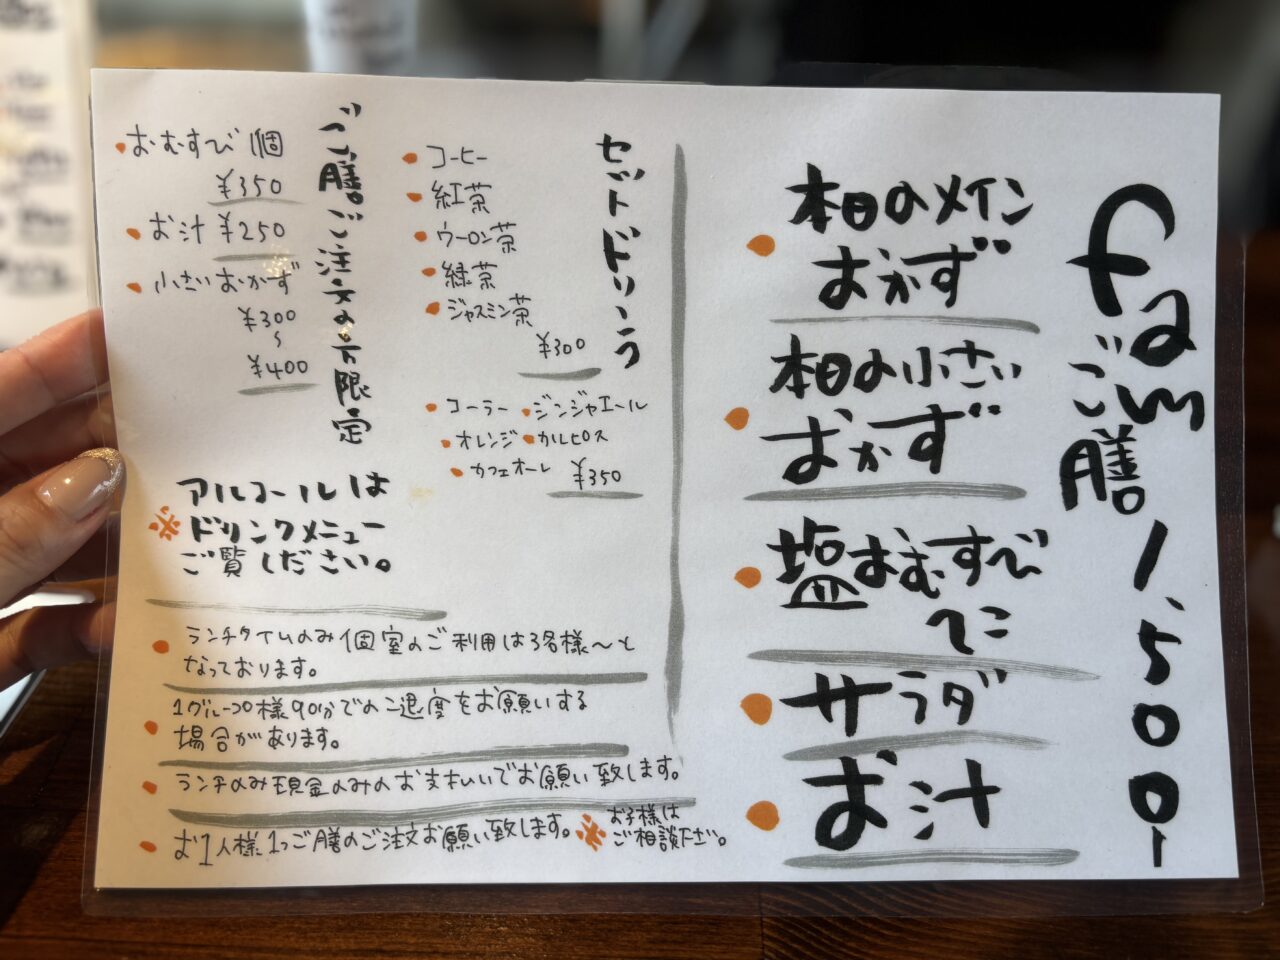 fam ご膳 1,500-
本日のメイン
おかず
本日の小さい
おかず
塩おむすび
1コ
サラダ
お汁
セットドリンク
コーヒー
紅茶
ウーロン茶
緑茶
ジャスミン茶
¥300
コーラー ジンジャエール
オレンジ カルピス
カフェオーレ ¥350
ご膳ご注文の方限定
おむすび 1個
¥350
お汁 ¥250
小さいおかず
¥300
〜
¥400
※アルコールは
ドリンクメニュー
ご覧しださい。
ランチタイムのみ個室のご利用は3名様〜と
なっております。
1グループ様90分でのご退席をお願いする
場合があります。
ランチのみ現金のみのお支払いでお願い致します。
お1人様、1つご膳のご注文お願い致します。※お子様は
ご相談下さい。